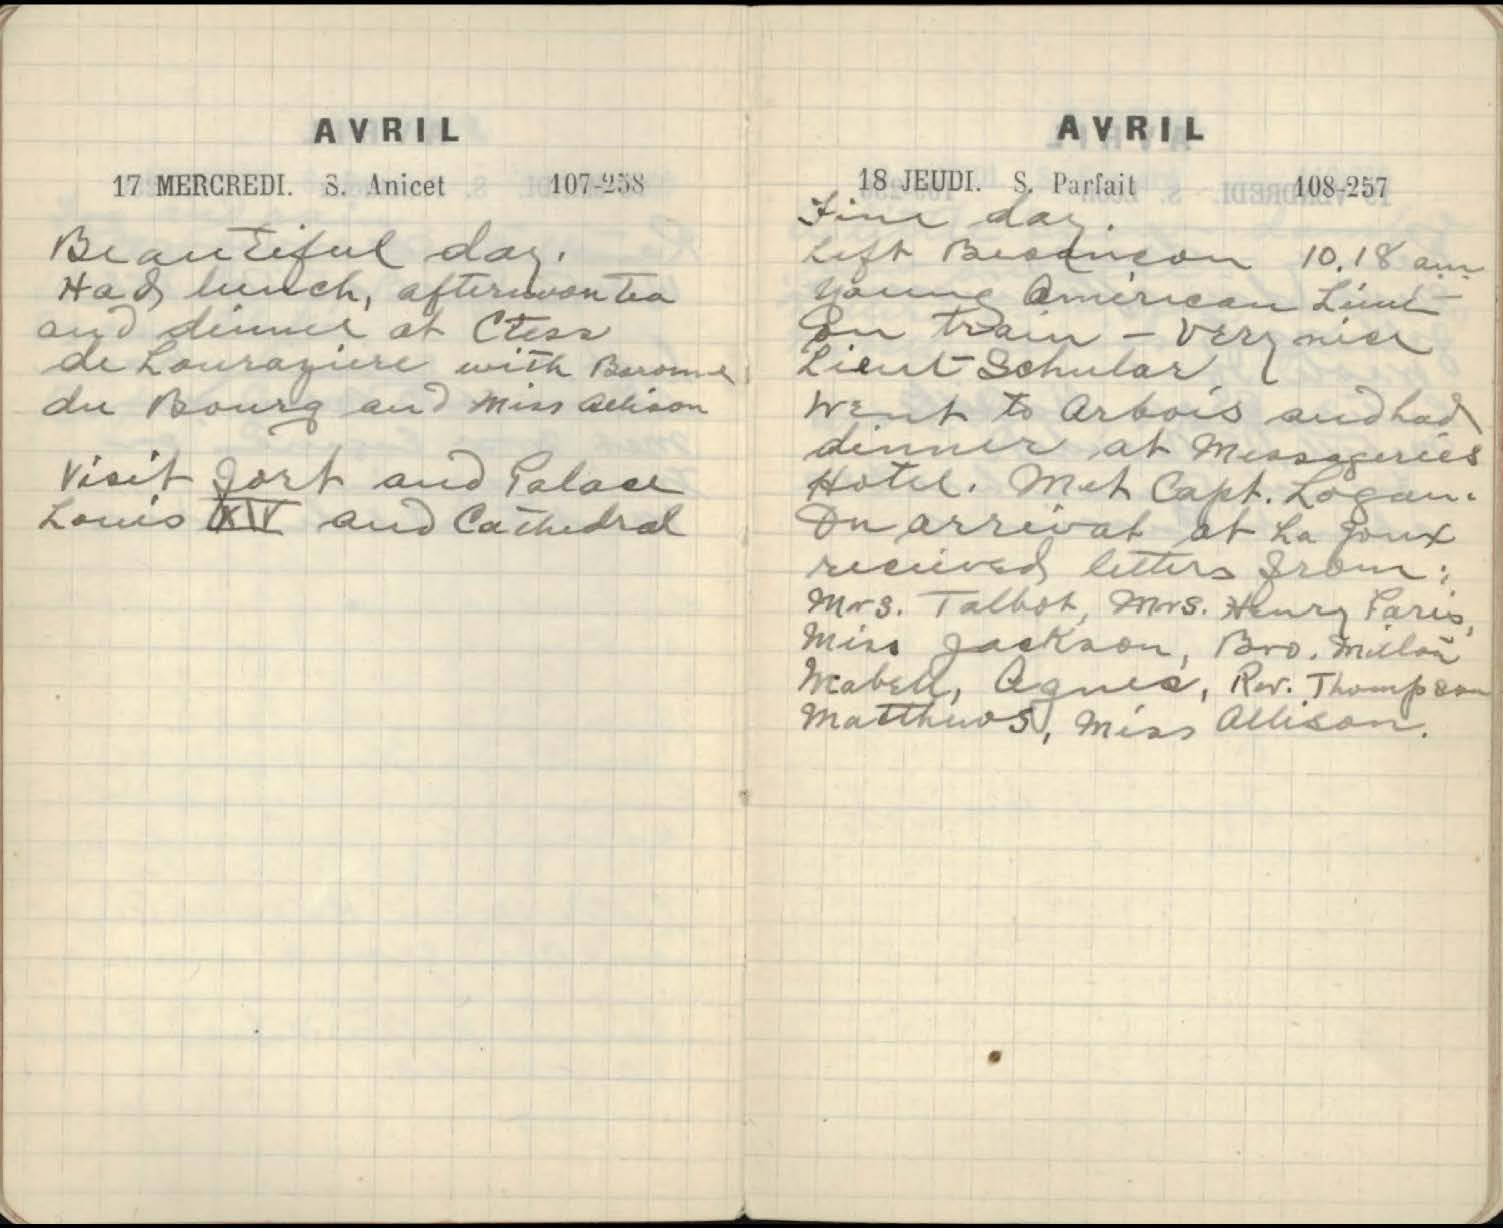 AVRIL
17 MERCREDI. S. Anicet 107-258
Beautiful day.
Had lunch, afternoon tea
and dinner at Ctess
de Louraziere with Baronne
du Bourg and Miss Allison
Visit fort and Palace
Louis XIV and Cathedral
AVRIL
18 JEUDI. S. Parfait 108-257
Fine day.
Left Besancon 10.18 am
Young American Lieut
on train - Very nice
Lieut Schular
Went to Arbois and had
dinner at Messageries
Hotel. Met Capt. Logan.
On arrival at La Joux
received letters from:
Mrs. Talbot, Mrs. Henry Paris,
Miss Jackson, Bro. Milton
Mabell, Agnes, Rev. Thompson
Matthews, Miss Allison.